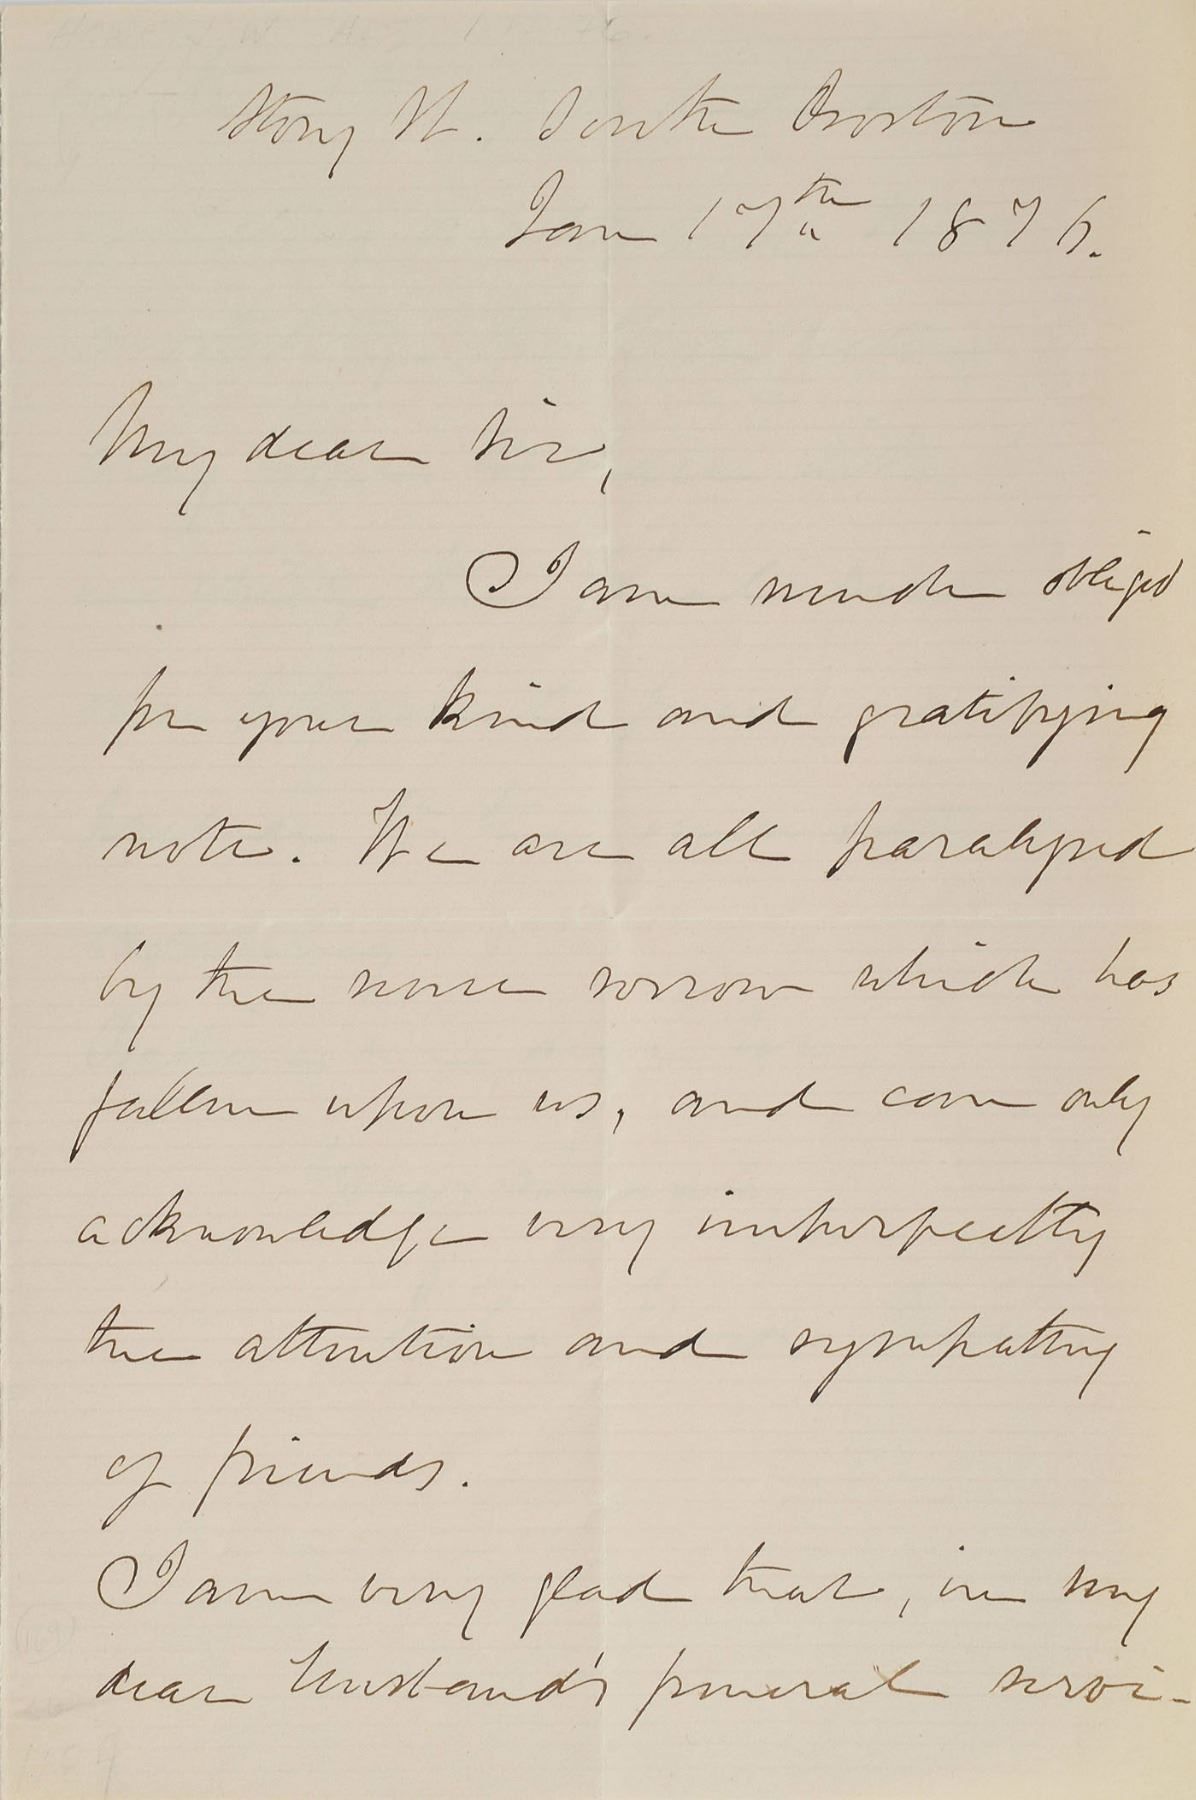 Story St. South Boston
Jan 17th 1876.
My dear Sir,
I am much obliged
for your kind and gratifying
note. We are all paralyzed
by the sore sorrow which has
fallen upon us, and can only
acknowledge very imperfectly
the attention and sympathy
of friends.
I am very glad that, in my
dear husband's funeral servi-